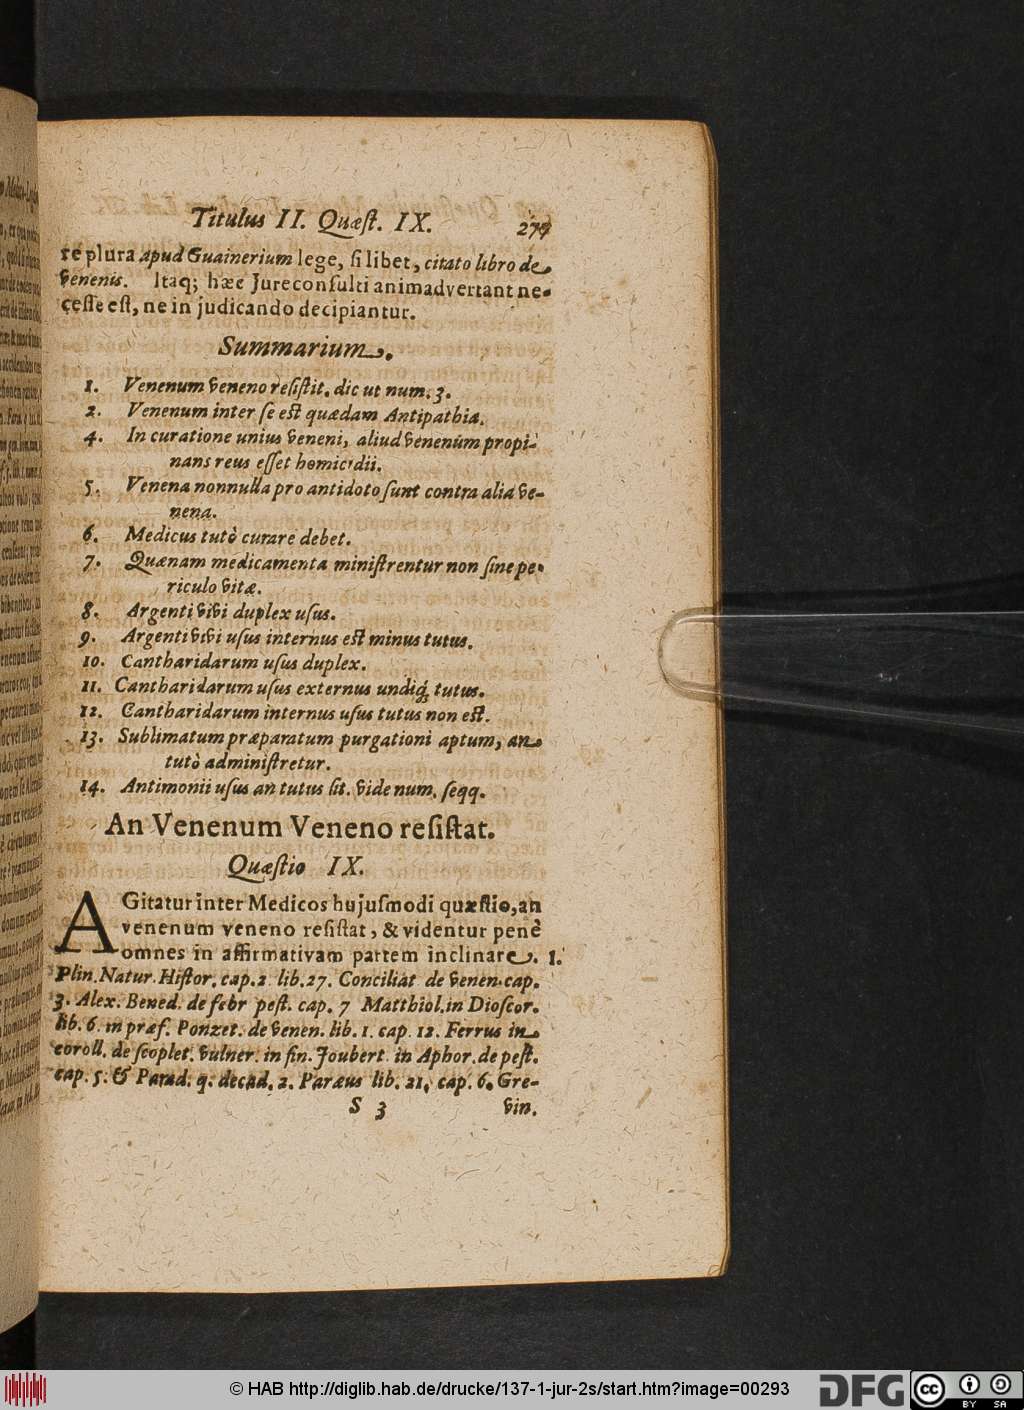 Titulus II. Quæſt. IX. 277
re plura apud Guainerium lege, ſi libet, citato libro de
Venenis. Itaq; hæc Jureconſulti animadvertant ne-
ceſſe eſt, ne in judicando decipiantur.
Summarium.
1. Venenum veneno reſiſtit. dic ut num. 3.
2. Venenum inter ſe eſt quædam Antipathia.
4. In curatione unius veneni, aliud venenum propi-
nans reus eſſet homicidii.
5. Venena nonnulla pro antidoto ſunt contra alia ve-
nena.
6. Medicus tutò curare debet.
7. Quænam medicamenta miniſtrentur non ſine pe-
riculo vitæ.
8. Argenti vivi duplex uſus.
9. Argenti vivi uſus internus eſt minus tutus.
10. Cantharidarum uſus duplex.
11. Cantharidarum uſus externus undiq; tutus.
12. Cantharidarum internus uſus tutus non eſt.
13. Sublimatum præparatum purgationi aptum, an
tutò adminiſtretur.
14. Antimonii uſus an tutus ſit. vide num. ſeqq.
An Venenum Veneno reſiſtat.
Quæſtio IX.
AGitatur inter Medicos hujuſmodi quæſtio, an
venenum veneno reſiſtat, & videntur penè
omnes in affirmativam partem inclinare. 1.
Plin. Natur. Hiſtor. cap. 2 lib. 27. Conciliat de venen. cap.
3. Alex. Bened. de febr peſt. cap. 7 Matthiol. in Dioſcor.
lib. 6. in præf. Ponzet. de venen. lib. 1. cap. 12. Ferrus in
coroll. de ſcoplet. vulner. in fin. Joubert. in Aphor. de peſt.
cap. 5. & Parad. q. decad. 2. Paræus lib. 21. cap. 6. Gre-
S 3 vin.
© HAB http://diglib.hab.de/drucke/137-1-jur-2s/start.htm?image=00293
DFG cc BY SA